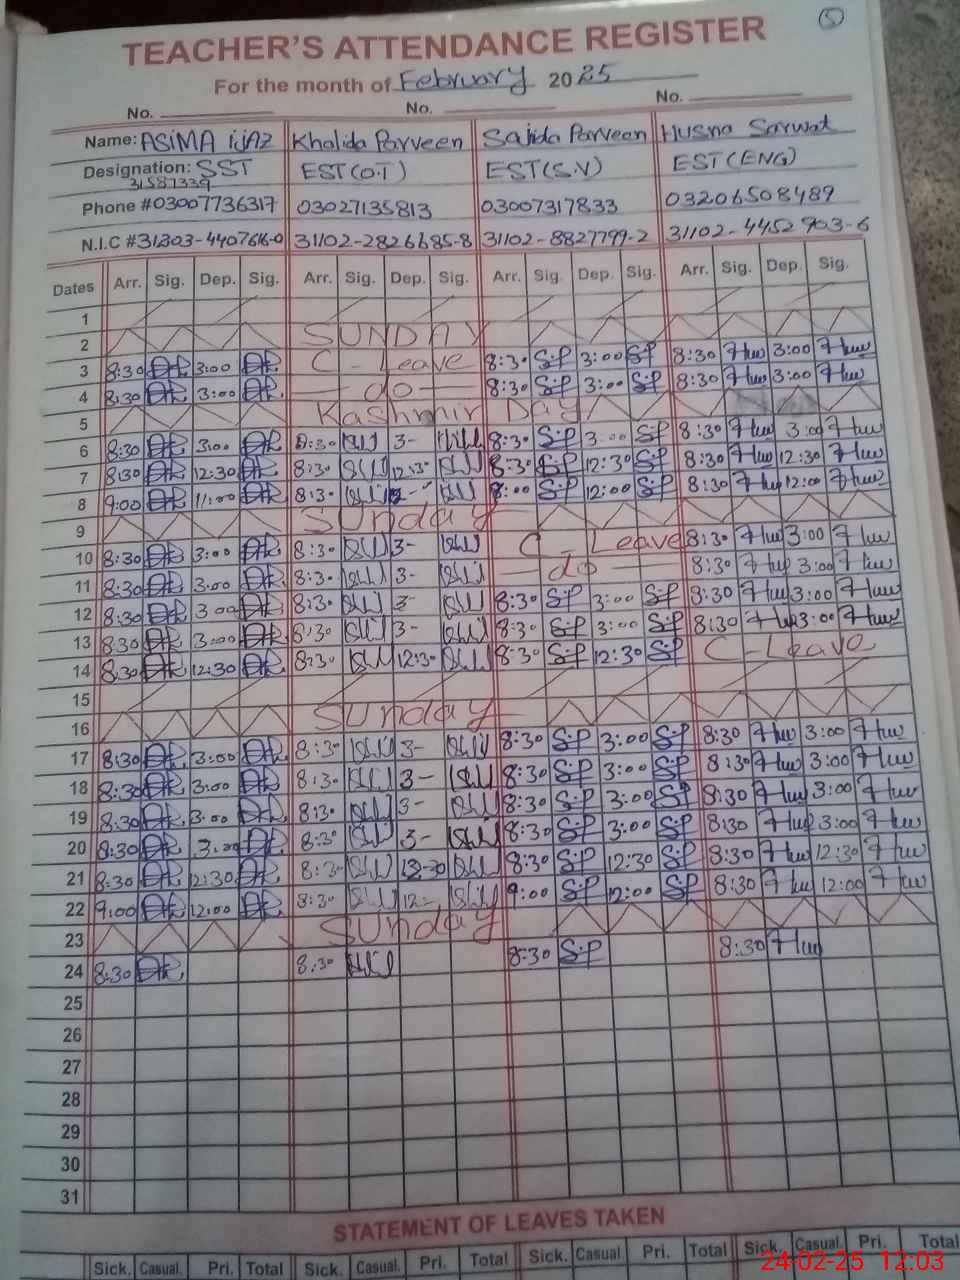 5
TEACHER'S ATTENDANCE REGISTER
For the month of February 2025
No. No. No.
Name: ASiMA iJAZ Khalida Parveen Sajida Parveen Husna Sarwat
Designation: SST EST(O.T) EST(S.V) EST(ENG)
31587339
Phone #03007736317 03027135813 03007317833 03206508489
N.I.C #31303-4407616-0 31102-2826685-8 31102-8827799-2 31102-4452903-6
Dates Arr. Sig. Dep. Sig. Arr. Sig. Dep. Sig. Arr. Sig. Dep. Sig. Arr. Sig. Dep. Sig.
1
2 SUNDAY
3 8:30 3:00 C-Leave 8:30 S.P 3:00 S.P 8:30 3:00
4 8:30 3:00 do 8:30 S.P 3:00 S.P 8:30 3:00
5 Kashmir Day
6 8:30 3:00 8:30 3- 8:30 S.P 3:00 S.P 8:30 3:00
7 8:30 12:30 8:30 12:30 8:30 S.P 12:30 S.P 8:30 12:30
8 9:00 11:00 8:30 8:00 S.P 12:00 S.P 8:30 12:00
9 SUnday
10 8:30 3:00 8:30 3- C-Leave 8:30 3:00
11 8:30 3:00 8:30 3- do 8:30 3:00
12 8:30 3:00 8:30 3- 8:30 S.P 3:00 S.P 8:30 3:00
13 8:30 3:00 8:30 3- 8:30 S.P 3:00 S.P 8:30 3:00
14 8:30 12:30 8:30 12:30 8:30 S.P 12:30 S.P C-Leave
15
16 SUnday
17 8:30 3:00 8:30 3- 8:30 S.P 3:00 S.P 8:30 3:00
18 8:30 3:00 8:30 3- 8:30 S.P 3:00 S.P 8:30 3:00
19 8:30 3:00 8:30 3- 8:30 S.P 3:00 S.P 8:30 3:00
20 8:30 3:00 8:30 3- 8:30 S.P 3:00 S.P 8:30 3:00
21 8:30 12:30 8:30 8:30 S.P 12:30 S.P 8:30 12:30
22 9:00 12:00 8:30 12- 9:00 S.P 12:00 S.P 8:30 12:00
23 Sunday
24 8:30 8:30 8:30 S.P 8:30
25
26
27
28
29
30
31
STATEMENT OF LEAVES TAKEN
Sick. Casual. Pri. Total Sick. Casual. Pri. Total Sick. Casual Pri. Total Sick. Casual. Pri. Total
24-02-25 12:03